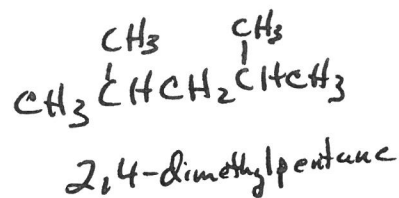 CH3 CH3
CH3CHCH2CHCH3
2,4-dimethylpentane